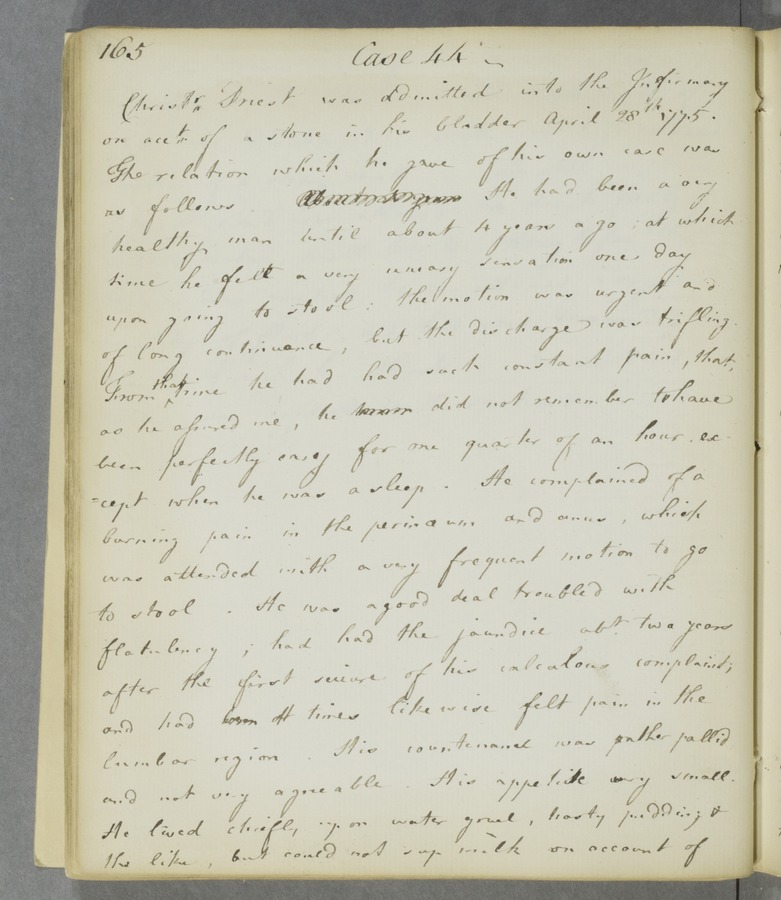 165
Case 44
Christr. Priest was admitted into the Infirmary
on acct. of a stone in his bladder April 28th 1775.
The relation which he gave of his own case was
as follows. He had been a very
healthy man until about 4 years ago; at which
time he felt a very uneasy sensation one day
upon going to stool: the motion was urgent and
of long continuance, but the discharge was trifling.
From that time he had had such constant pain, that,
as he assured me, he did not remember to have
been perfectly easy for one quarter of an hour ex-
=cept when he was asleep. He complained of a
burning pain in the perinæum and anus, which
was attended with a very frequent motion to go
to stool. He was a good deal troubled with
flatulency; had had the jaundice abt. two years
after the first seizure of his calculous complaint;
and had at times likewise felt pain in the
lumbar region. His countenance was rather pallid
and not very agreeable. His appetite very small.
He lived chiefly upon water gruel, hasty pudding &
the like, but could not sup milk on account of